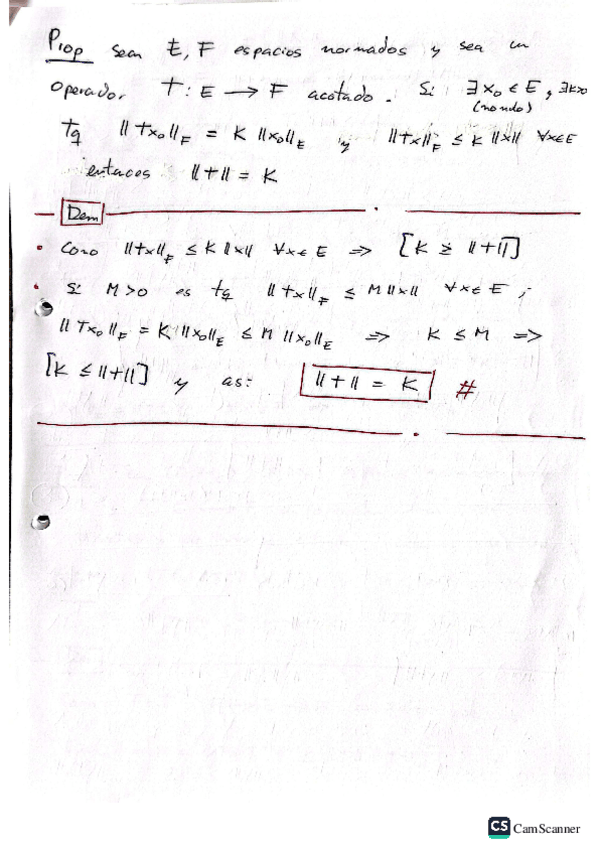 Prop Sean E, F espacios normados y sea un
operador T: E → F acotado. Si ∃ x₀ ∈ E, ∃ K>0
(no nulo)
tq ‖Tx₀‖_F = K ‖x₀‖_E y ‖Tx‖_F ≤ K ‖x‖ ∀x∈E
entonces ‖T‖ = K
Dem
• Como ‖Tx‖_F ≤ K ‖x‖ ∀x ∈ E ⇒ [K ≥ ‖T‖]
• Si M>0 es tq ‖Tx‖_F ≤ M‖x‖ ∀x∈E ;
‖Tx₀‖_F = K‖x₀‖_E ≤ M ‖x₀‖_E ⇒ K ≤ M ⇒
[K ≤ ‖T‖] y así: ‖T‖ = K #
CS CamScanner